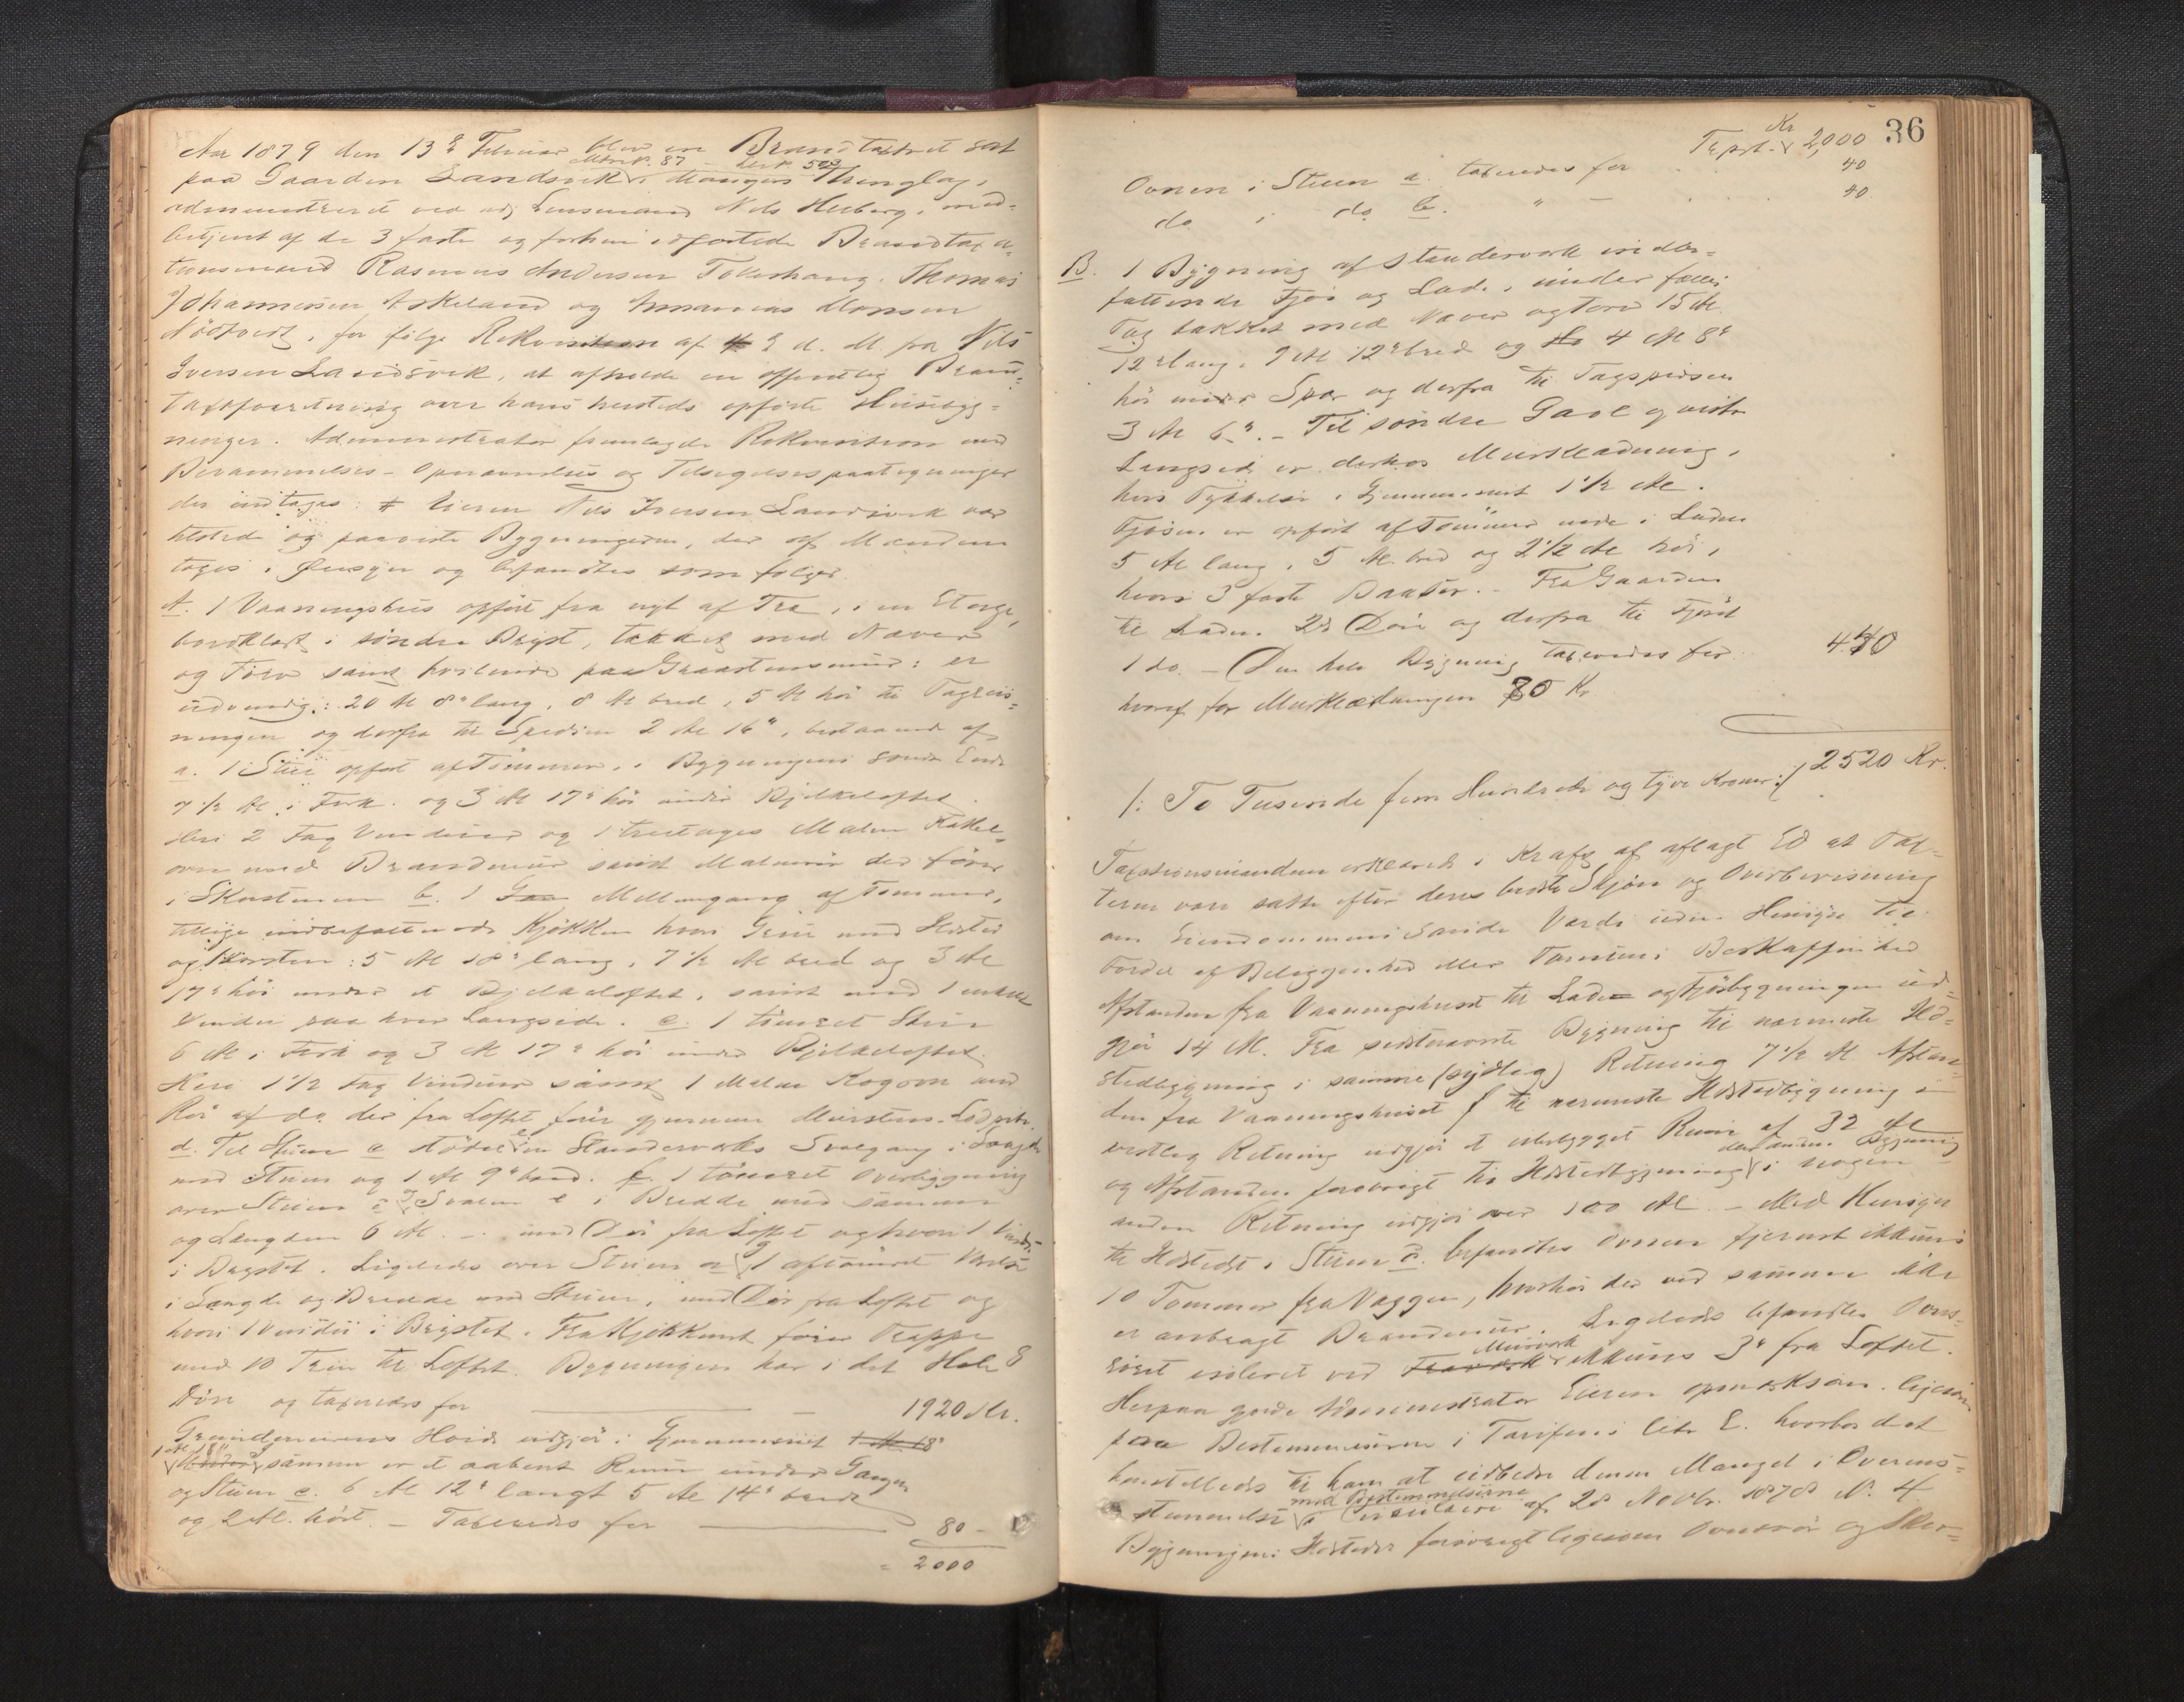 Aar 1879 den 13de Februar blev en Brandtaxtret sat
paa Gaarden Landsvik Matr.N. 87 - i Mangers Thinglag,
administreret ved Lensmand Nils Herberg, med-
betjent af de 3 faste og forhen edfæstede Brandtaxa-
tionsmænd Rasmus Andersen Toskehang, Thomas
Johannessen Askeland og Ananias Monsen
Nödtvedt, før følge Rekvisition af d. M fra Nils
Iversen Landsvik, at afholde en offentlig Brand-
taxtforretning over hans hersteds opförte Huusbyg-
ninger. Administrator fremlagde Rekvisition med
Berammelses- Opnævnelses og Tilsigelsespaategninger
der indtages: # Eieren Nils Iversen Landsvik var
tilstede og paaviste Bygningerne, der af Mændene
toges i Öiesyn og befandtes som følger
A. 1 Vaaningshus opført fra nyt af Træ, i en Etage,
bordklædt i söndre Bryst, tækket med Næver
og Törv samt hvilende paa Graastensmuur: er
udvendig: 20 Al 8" lang, 8 Al bred, 5 Al höi til Tagreis-
ningen og derfra til Spidsen 2 Al 16", bestaaende af
a. 1 Stue opfört af Tömmer, i Bygningens söndre Ende
7 1/2 Al i Firk. og 3 Al 17" höi under Bjelkeloftet
deri 2 Fag Vinduer og 1 treetages Malm Kakkel-
ovn med Brandmuur samt Malmrör der förer
i Skorstenen b. 1 Gaa Mellemgang af Tömmer,
tillige indbefattende Kjökken hvori Grue med Ildsted
og Skorsten: 5 Al 18" lang, 7 1/2 Al bred og 3 Al
17" höi under et Bjelkeloftet, samt med 1 enkelt
Vindu paa hver Langside. c. 1 tömret Stue
6 Al i Firk og 3 Al 17" höi under Bjelkeloftet
Heri 1 1/2 Fag Vinduer samt 1 Malm Kogovn med
Rör af do der fra Loftet förer gjennem Mursten
d. Til Stuen c stöder en Standerværks Svalgang i Længde
med Stuen og 1 Al 9" bred. f. 1 tömret Overbygning
over Stuen c & Svalen e i Bredde med samme
og Længden 6 Al. - med Dör fra Loftet og hvori 1 Vindu
i Brystet. Ligeledes over Stuen a 1 aftömret Værelse
i Længde og Bredde med Stuen, med Dör fra Loftet og
hvori 1 Vindu i Brystet. Fra Kjökkenet förer Trappe
med 10 Trin til Loftet. Bygningen har i det Hele 8
Döre og taxeredes for - 1920 Kr.
Grundmurens Höide udgjör i Gjennemsnit 1 Al 18"
1 Al 18" Under samme er et aabent Rum under Gangen
og Stuen c. 6 Al 12" langt 5 Al 14" bredt
og 2 Al. höit. - Taxeredes for 80 -
= 2000
36
Trsprt. Kr 2,000
Ovnen i Stuen a. taxeredes for 40
do i do c. " - 40
B. 1 Bygning af Standerværk indbe-
fattende Fjös og Lade, under fælles
Tag tækket med Næver og Törv 15 Al
12" lang, 9 Al 12" bred og 4 Al 8"
höi under Spær og derfra til Tagspidsen
3 Al 6". - Til söndre Gavl og vestre
Langside er derhos Murklædning,
hvis Tykkelse i Gjennemsnit 1 1/2 Al.
Fjösen er opfört af Tömmer nede i Laden
5 Al lang, 5 Al. bred og 2 1/2 Al höi,
hvori 3 faste Baaser. - Fra Gaarden
til Laden 2de Döre og derfra til Fjöset
1 do. - Den hele Bygning taxeredes for 440
hvoraf for Murklædningen 80 Kr.
2520 Kr.
/: To Tusinde fem Hundrede og tyve Kroner :/
Taxationsmændene erklærede i Kraft af aflagt Ed at Tax-
terne vare satte efter deres bedste Skjön og Overbeviisning
om Eiendommens sande Værdi uden Hensyn til
Fordel af Beliggenhed eller Tomtens Beskaffenhed
Afstanden fra Vaaningshuset til Lade og Fjösbygningen ud-
gjör 14 Al. Fra sidstnævnte Bygning til nærmeste Ild-
stedbygning i samme (sydlig) Retning 7 1/2 Al. Afstan-
den fra Vaaningshuset til nærmeste Ildstedbygning i
vestlig Retning udgjör et ubebygget Rum af 32 Al
og Afstanden forövrigt til Ildstedbygning eller anden Bygning i nogen
anden Retning udgjör over 100 Al. - Med Hensyn
til Ildstedet i Stuen c. befandtes Ovnen fjernet ikkuns
10 Tommer fra Væggen, hvorhos der ved samme ikke
er anbragt Brandmuur. Ligeledes befandtes Ovns-
röret isoleret ved Træværk Murværk ikkuns 3" fra Loftet.
Herpaa gjorde Administrator Eieren opmærksom ligesom
paa Bestemmelserne i Tarifens litr E. hvorhos det
henstilledes til ham at udbedre denne Mangel i Overens-
stemmelse med Bestemmelserne i Circulære af 28 Novbr. 1878 N. 4
Bygningens Ildsteder forövrigt ligesom Ovnsrör og Skor-